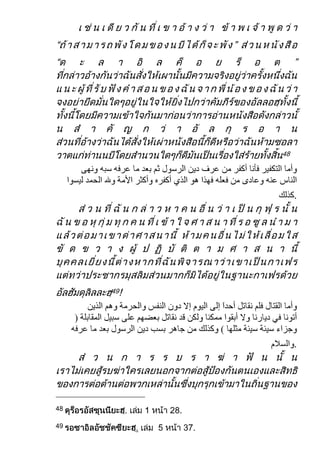 เช่นเดียวกันที่เขาอ้างว่า ข้าพเจ้าพูดว่า
“ถ้าสามารถพังโดมของนบีได้ก็จะพัง” ส่วนหนังสือ
“ดะลาอิลคีอยรีอต”
ที่กล่าวอ้างกันว่าฉันสั่งให้เผานั้นมีความจริงอยู่ว่าครั้งหนึ่งฉัน
แนะผู้ที่รับฟังคำสอนของฉันจากพี่น้องของฉันว่า
จงอย่ายึดมั่นใดๆอยู่ในใจให้ยิ่งไปกว่าคัมภีร์ของอัลลอฮฺทั้งนี้
ทั้งนี้โดยมีความเข้าใจกันมาก่อนว่าการอ่านหนังสือดังกล่าวนี้
นสำคัญกว่าอัลกุรอาน
ส่วนที่อ้างว่าฉันได้สั่งให้เผ่าหนังสือนี้ก็ดีหรือว่าฉันห้ามซอลา
วาตแก่ท่านนบีโดยสำนวนใดๆก็ดีมันเป็นเรื่องใส่ร้ายทั้งสิ้น48
وأما التكفير فأنا أكفر من عرف دين الرسول ثم بعد ما عرفه سبه ونهى
الناس عنه وعادى من فعله فهذا هو الذي أكفره وأكثر الأمة ولله الحمد ليسوا
كذلك.
ส่วนที่ฉันกล่าวหาคนอื่นว่าเป็นกุฟรนั้น
ฉันขอหุก่มทุกคนที่เข้าใจศาสนาที่รอซูลนำมา
แล้วต่อมาเขาด่าศาสานี้ ห้ามคนอื่นไม่ให้เลื่อมใส
ขัดขวางผู้ปฏิบัติตามศาสนานี้
บุคคลเยี่ยงนี้ต่างหากที่ฉันพิจารณาว่าเขาเป็นกาเฟร
แต่ทว่าประชากรมุสลิมส่วนมากก็มิได้อยู่ในฐานะกาเฟรด้วย
อัลฮัมดุลิลละฮ49!
وأما القتال فلم نقاتل أحداً إلى اليوم إلا دون النفس والحرمة وهم الذين
أتونا في ديارنا ولا أبقوا ممكنا ولكن قد نقاتل بعضهم على سبيل المقابلة (
وجزاء سيئة سيئة مثلها ) وكذلك من جاهر بسب دين الرسول بعد ما عرفه
والسلام.
ส่วนการรบราฆ่าฟันนั้น
เราไม่เคยสู้รบฆ่าใครเลยนอกจากต่อสู้ป้องกันตนเองและสิทธิ
ของการต่อต้านต่อพวกเหล่านั้นซึ่งบุกรุกเข้ามาในถิ่นฐานของ
48 ดุร็อรอัสซุนนียะฮ. เล่ม 1 หน้า 28.
49 รอซาอิลอัชชัคซียะฮ. เล่ม 5 หน้า 37.